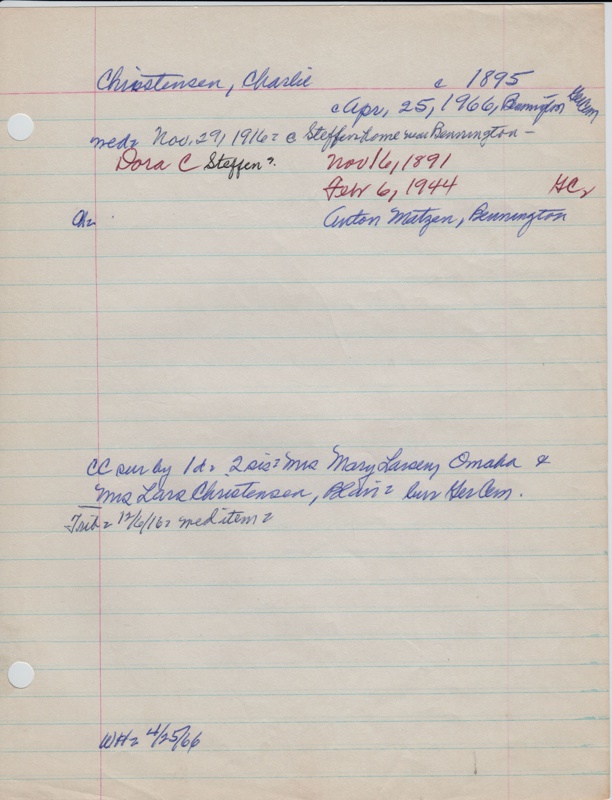 Christensen, Charlie c 1895
c Apr, 25, 1966, Bennington GerCem
wed= Nov. 29, 1916= @ Steffen home near Bennington -
Dora C Steffen= Nov 16, 1891
Feb 6, 1944 GC=
Ch= Anton Matzen, Bennington
CC sur by 1d= 2 sis= Mrs Mary Larsen, Omaha &
Mrs Lars Christensen, Blair= bur GerCem.
Trib= 12/6/16= wed item=
WH= 4/25/66